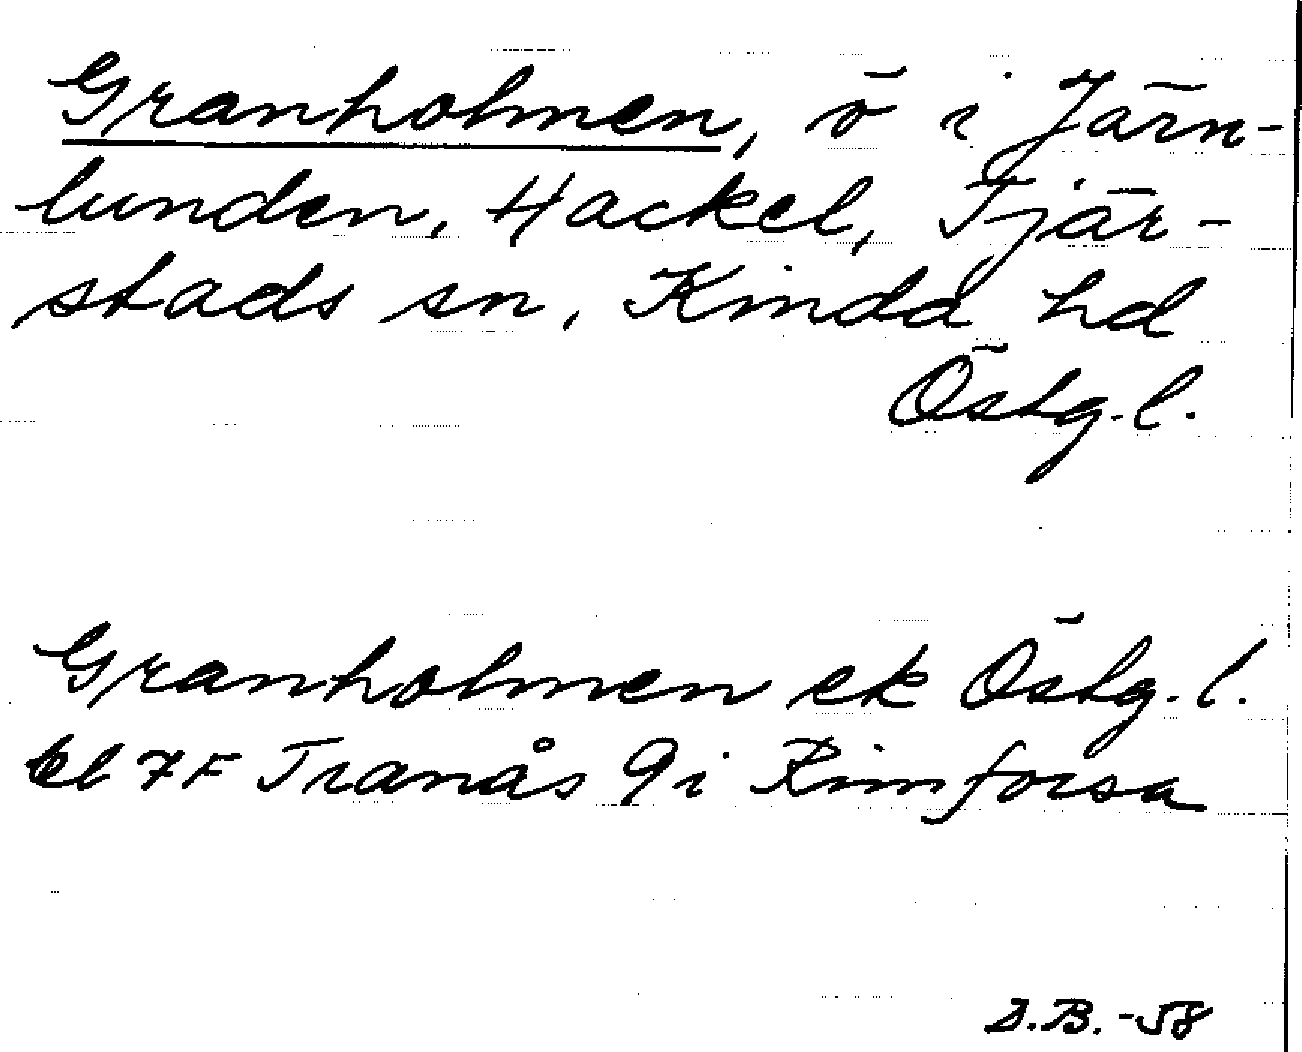 Granholmen, ö i Järn-
lunden, Hackel, Tjär-
stads sn, Kinda hd
Östg.l.
Granholmen ek Östg.l.
bl 7F Tranås 9i Rimforsa
D.B.-58